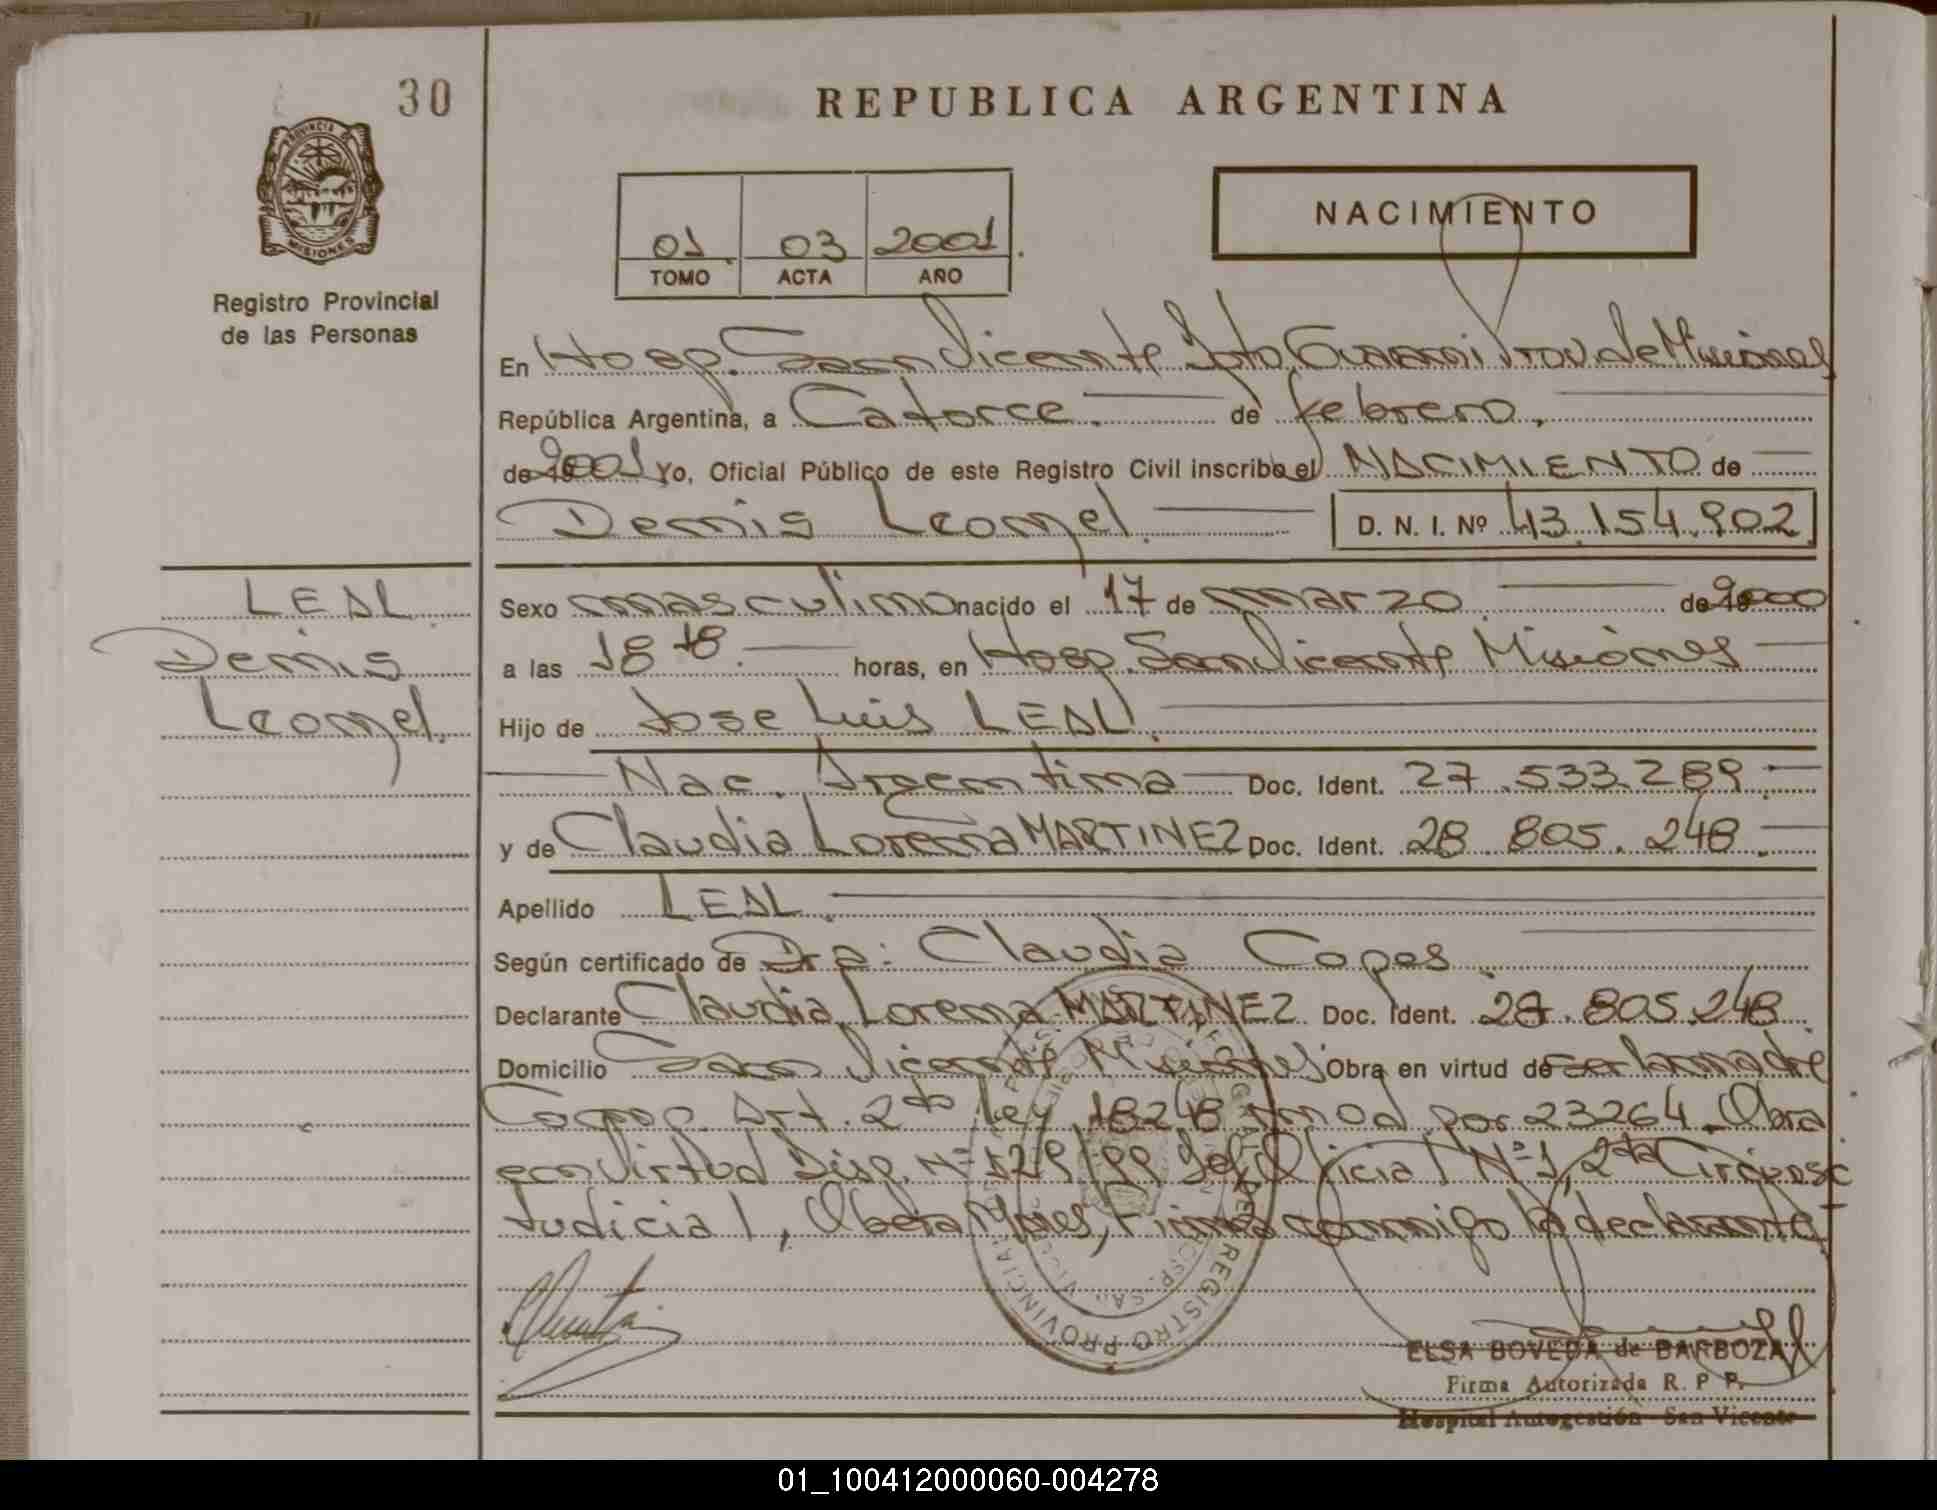 30
REPUBLICA ARGENTINA
PROVINCIA DE
MISIONES
Registro Provincial
de las Personas
01 03 2001
TOMO ACTA AÑO
NACIMIENTO
En Hosp. San Vicente Dpto. Guarani Prov. de Misiones
República Argentina, a Catorce de febrero
de 2001 Yo, Oficial Público de este Registro Civil inscribo el NACIMIENTO de
Demis Leonel D. N. I. Nº 43.154.902
LEAL
Demis
Leonel
Sexo masculino nacido el 17 de marzo de 2000
a las 18 18 horas, en Hosp. San Vicente Misiones
Hijo de Jose Luis LEAL
Nac. Argentina Doc. Ident. 27.533.289
y de Claudia Lorena MARTINEZ Doc. Ident. 28.805.248
Apellido LEAL
Según certificado de Dra: Claudia Copes
Declarante Claudia Lorena MARTINEZ Doc. Ident. 28.805.248
Domicilio San Vicente Misiones Obra en virtud de ser la madre
Art. 2do Ley 18248 mod. por 23264. Obra
en virtud Disp. Nº 129/99 Oficial Nº 1, 2da Circunsc
Judicial, Obera Mnes, Firma conmigo la declarante
REGISTRO PROVINCIAL
ELSA BOVEDA de BARBOZA
Firma Autorizada R. P. P.
Hospital Autogestión San Vicente
01_100412000060-004278